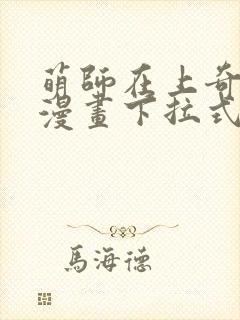 萌師在上奇
漫畫下拉式
馬海德